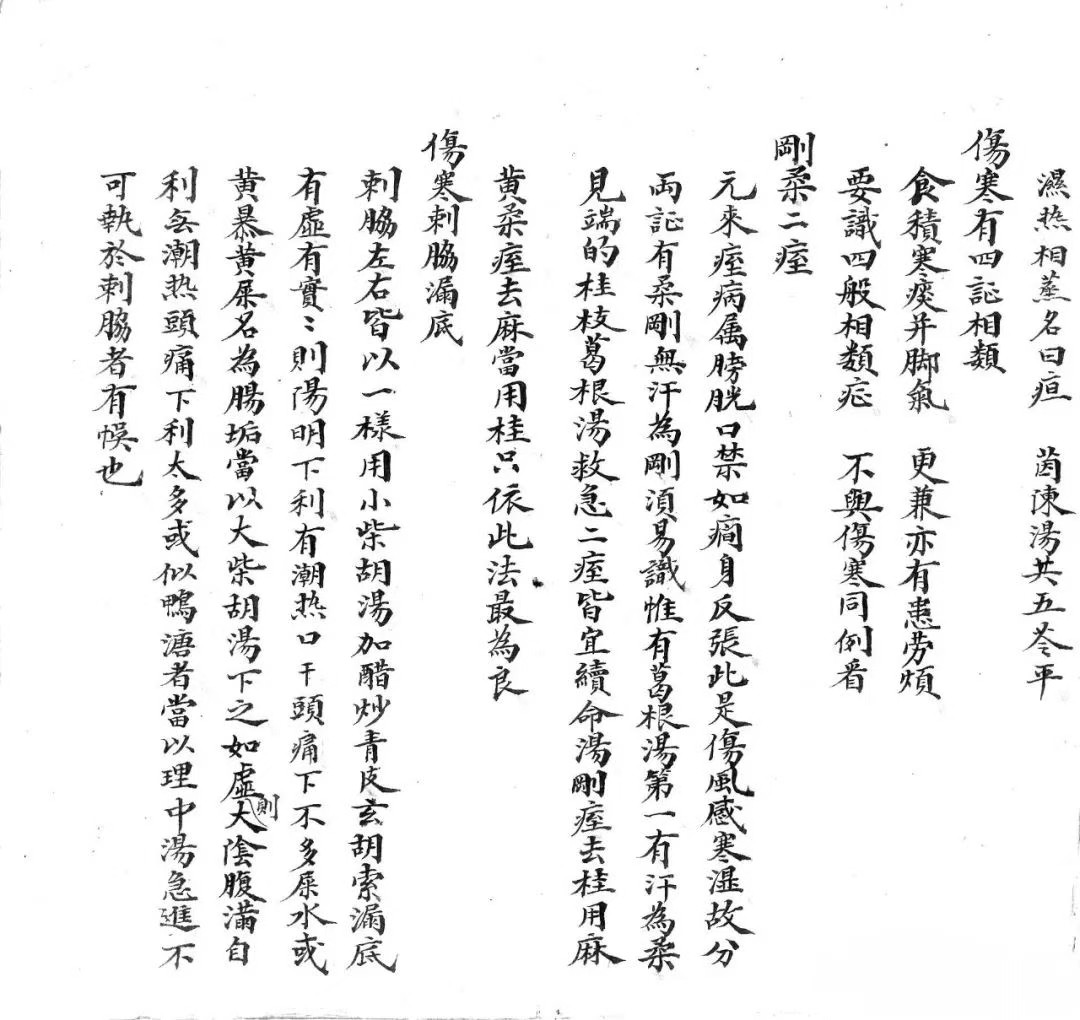 濕热相蒸名曰疸　茵陳湯共五苓平
傷寒有四証相類
食積寒痰并脚氣　更兼亦有患劳煩
要識四般相類症　不與傷寒同例看
剛柔二痓
元來痓病属膀胱口禁如癎身反張此是傷風感寒湿故分
両証有柔剛無汗為剛湏易識惟有葛根湯第一有汗為柔
見端的桂枝葛根湯救急二痓皆宜續命湯剛痓去桂用麻
黄柔痓去麻當用桂只依此法最為良
傷寒刺脇漏底
刺脇左右皆以一樣用小柴胡湯加醋炒青皮玄胡索漏底
有虛有實〻則陽明下利有潮热口干頭痛下不多屎水或
黄暴黄屎名為腸垢當以大柴胡湯下之如虛則大陰腹滿自
利無潮热頭痛下利太多或似鴨溏者當以理中湯急進不
可執於刺脇者有悞也